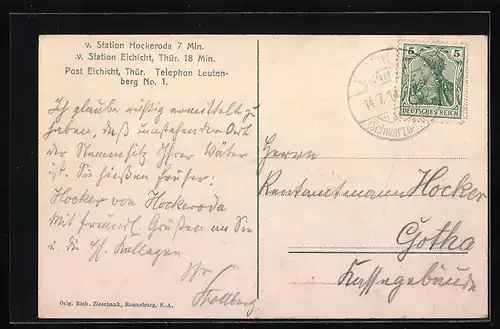 v. Station Hockeroda 7 Min.
v. Station Eichicht, Thür. 18 Min.
Post Eichicht, Thür. Telephon Leuten-
berg No. 1.
Ich glaube richtig ermittelt zu
haben, daß umstehender Ort
der Stammsitz Ihrer Väter
ist. Sie hießen früher:
Hocker von Hockeroda
Mit freundl. Grüßen an Sie
u. die H. Kollegen
Ihr
Orig. Rich. Zieschank, Ronneburg, S.-A.
5 5
DEUTSCHES REICH
Herrn
Rentamtmann Hocker
Gotha
Kassegebäude